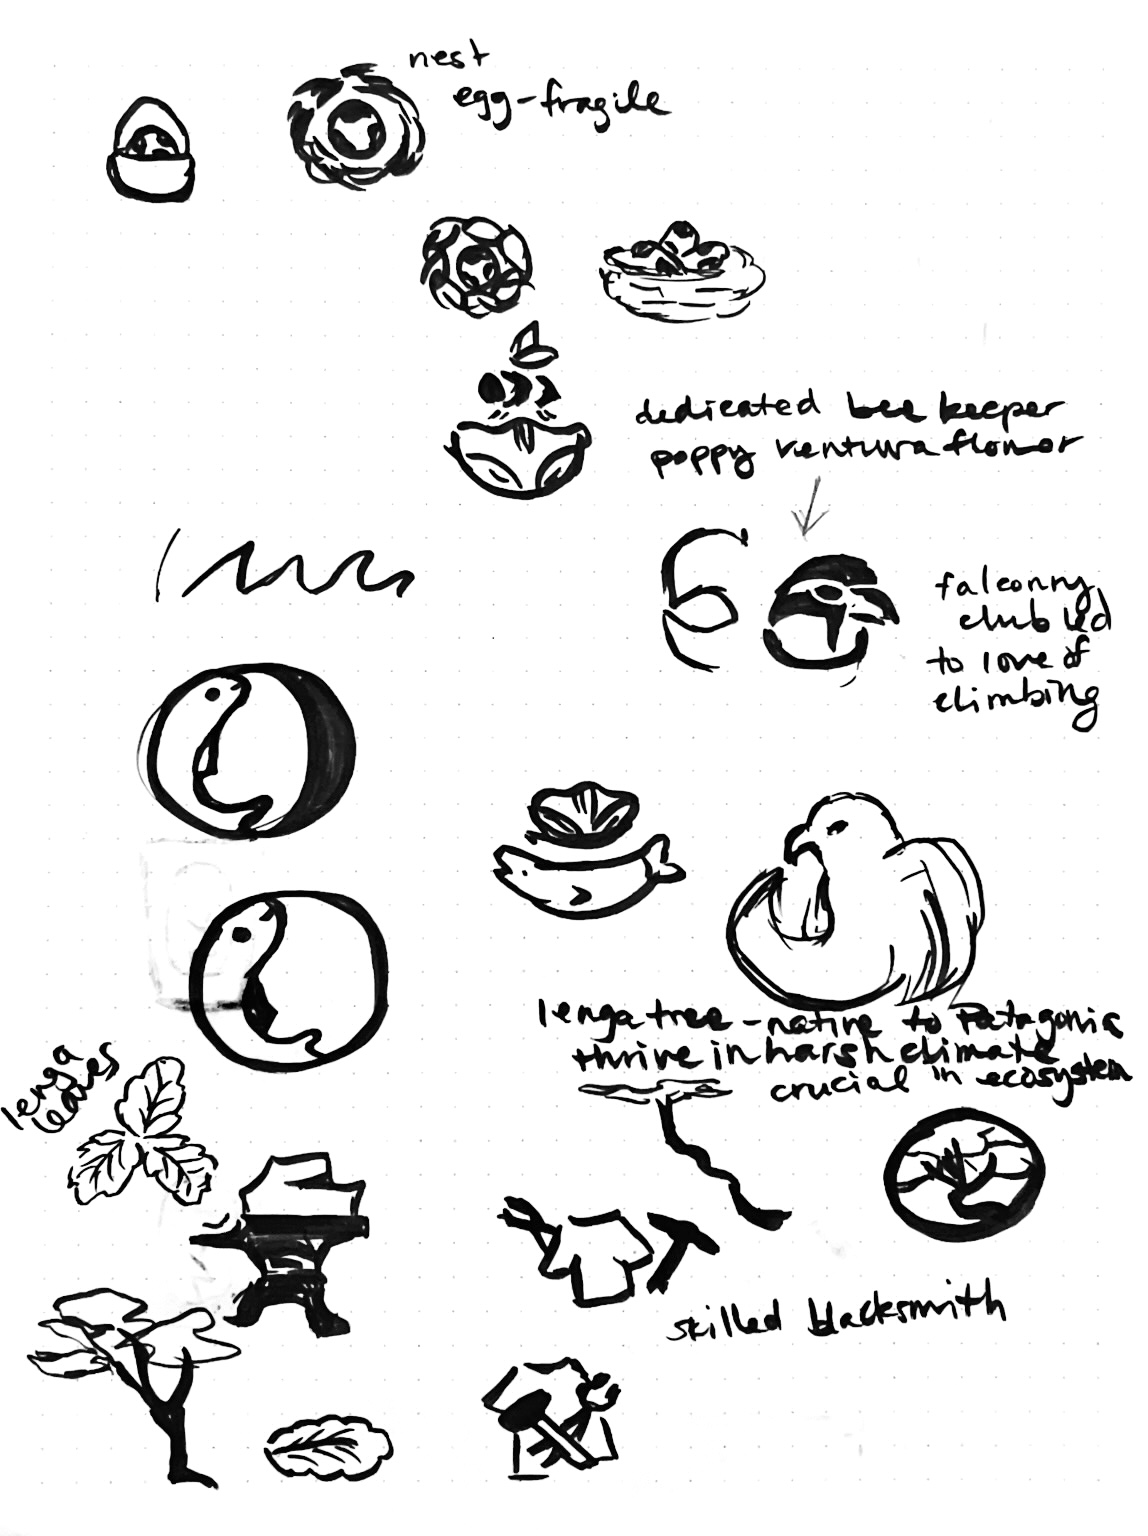 nest
egg-fragile
dedicated bee keeper
poppy ventura flower
falconry
club led
to love of
climbing
lenga tree - native to Patagonia
thrive in harsh climate
crucial in ecosystem
lenga
leaves
skilled blacksmith